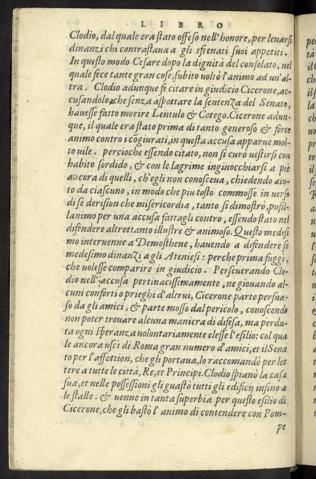 LIBRO
Clodio, dal quale era stato offeso nell'honore, per levarsi
dinanzi chi contrastava a gli sfrenati suoi appetiti.
In questo modo Cesare dopo la dignità del consolato, nel
quale fece tante gran cose, subito voltò l'animo ad un'al
tra. Clodio adunque fè citare in giudicio Cicerone, ac
cusandolo, che senza aspettare la sentenza del Senato,
havesse fatto morire Lentulo & Cetego. Cicerone adun-
que, il quale era stato prima di tanto generoso & forte
animo contro i cōgiurati, in questa accusa apparue mol-
to uile. percioche essendo citato, non si curò uestirsi con
habito sordido, & con le lagrime inginocchiarsi a piè
ancora di quelli, ch'egli non conosceua, chiedendo aiu-
to da ciascuno, in modo che piu tosto commosse in verso
di se derision che misericordia, tanto si dimostrò, pusil-
lanimo per una accusa fattagli contro, essendo stato nel
difendere altre tanto illustre & animoso. Questo medesi
mo interuenne a Demosthene, hauendo a difendere se
medesimo dinanzi a gli Ateniesi: perche prima fuggì,
che uolesse comparire in giudicio. Perseuerando Clo-
dio nell'accusa pertinacissimamente, ne giouando al-
cuni conforti o prieghi d'altrui, Cicerone parte persua-
so da gli amici, & parte mosso dal pericolo, conoscendo
non poter trovare alcuna maniera di difesa, ma perdu-
ta ogni speranza uolontariamente elesse l'esilio: col qua
le ancora uscì di Roma gran numero d'amici, et il Sena
to per l'affettion, che gli portaua, lo raccomandò per let
tere a tutte le città, Re, et Principi. Clodio spianò la casa
sua, et nelle possessioni gli guastò tutti gli edificij insino a
le stalle. & uenne in tanta superbia per questo esilio di
Cicerone, che gli bastò l'animo di contendere con Pom-
pe